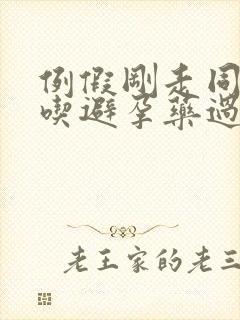 例假刚走同
喫避孕药過
老王家的老三